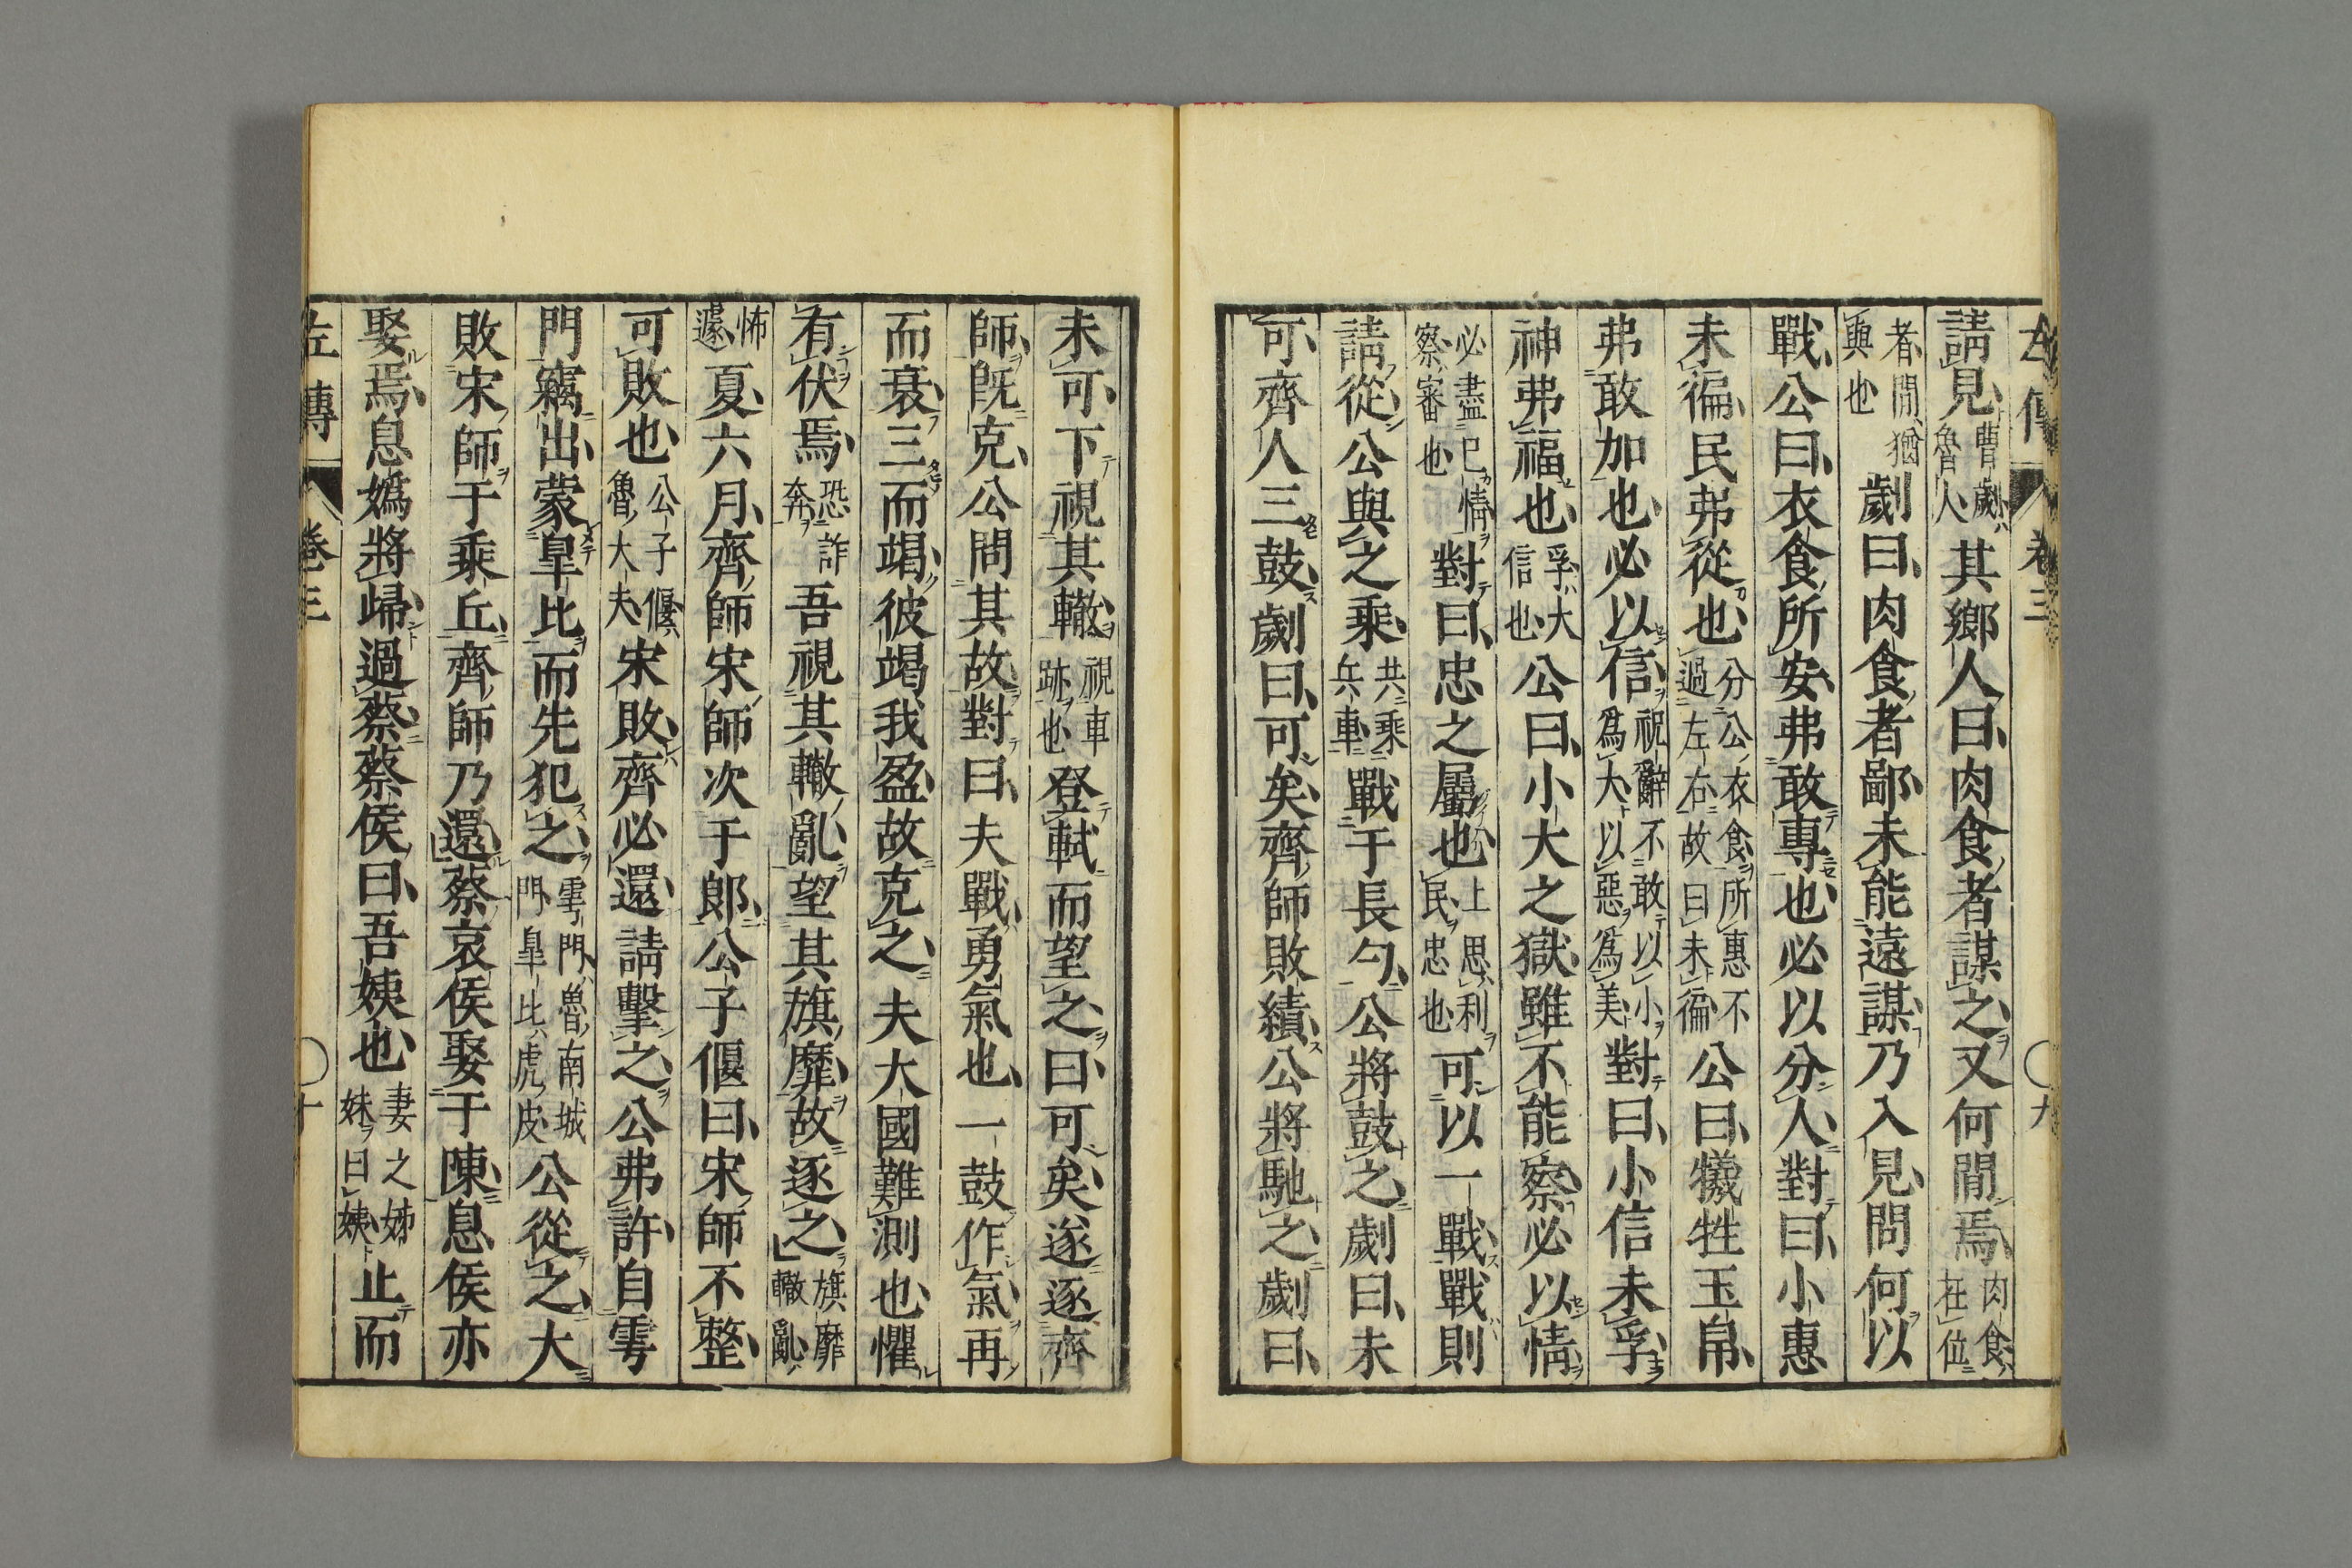 左傳 卷三 ○九
請見曹劌魯人其鄉人曰肉食者謀之又何閒焉肉食在位
者閒猶與也劌曰肉食者鄙未能遠謀乃入見問何以
戰公曰衣食所安弗敢專也必以分人對曰小惠
未徧民弗從也分公衣食所惠不過左右故曰未徧公曰犧牲玉帛
弗敢加也必以信祝辭不敢以小爲大以惡爲美對曰小信未孚
神弗福也孚大信也公曰小大之獄雖不能察必以情
必盡己情察審也對曰忠之屬也上思利民忠也可以一戰戰則
請從公與之乘共乘兵車戰于長勺公將鼓之劌曰未
可齊人三鼓劌曰可矣齊師敗績公將馳之劌曰
未可下視其轍視車跡也登軾而望之曰可矣遂逐齊
師既克公問其故對曰夫戰勇氣也一鼓作氣再
而衰三而竭彼竭我盈故克之夫大國難測也懼
有伏焉恐詐奔吾視其轍亂望其旗靡故逐之旗靡轍亂
怖遽夏六月齊師宋師次于郎公子偃曰宋師不整
可敗也公子偃魯大夫宋敗齊必還請擊之公弗許自雩
門竊出蒙皐比而先犯之雩門魯南城門皐比虎皮公從之大
敗宋師于乘丘齊師乃還蔡哀侯娶于陳息侯亦
娶焉息嬀將歸過蔡蔡侯曰吾姨也妻之姊妹曰姨止而
左傳 卷三 ○十